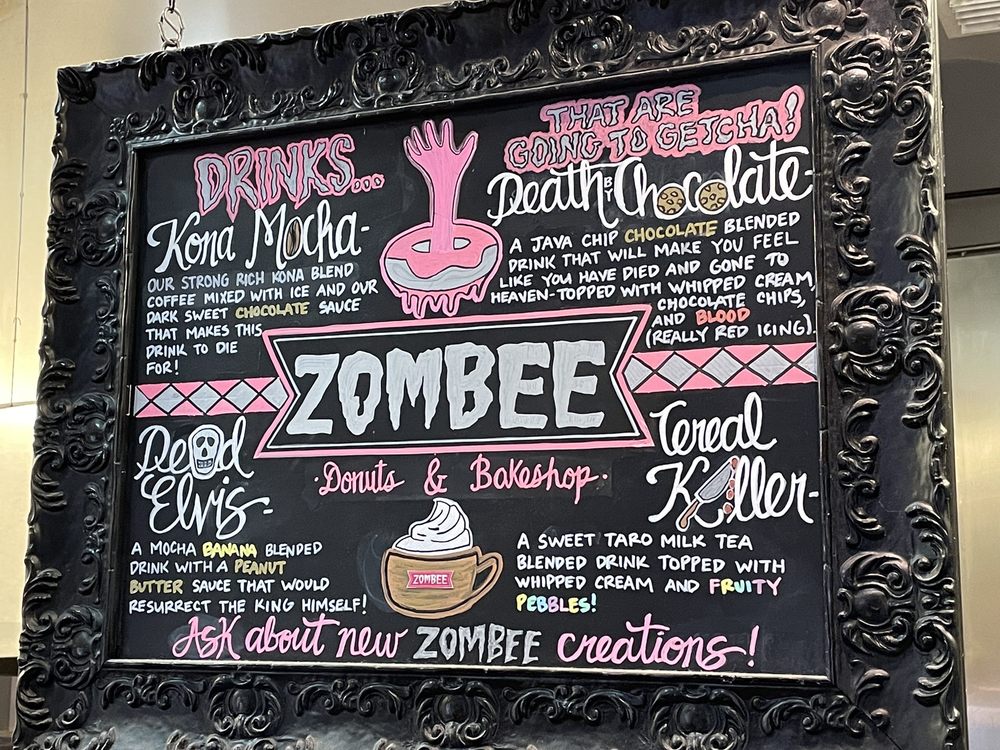 DRINKS...
THAT ARE
GOING TO GETCHA!
Kona Mocha-
OUR STRONG RICH KONA BLEND
COFFEE MIXED WITH ICE AND OUR
DARK SWEET CHOCOLATE SAUCE
THAT MAKES THIS
DRINK TO DIE
FOR!
Death BY Chocolate-
A JAVA CHIP CHOCOLATE BLENDED
DRINK THAT WILL MAKE YOU FEEL
LIKE YOU HAVE DIED AND GONE TO
HEAVEN-TOPPED WITH WHIPPED CREAM,
CHOCOLATE CHIPS,
AND BLOOD
(REALLY RED ICING).
ZOMBEE
·Donuts & Bakeshop·
Dead
Elvis-
A MOCHA BANANA BLENDED
DRINK WITH A PEANUT
BUTTER SAUCE THAT WOULD
RESURRECT THE KING HIMSELF!
ZOMBEE
Cereal
Killer-
A SWEET TARO MILK TEA
BLENDED DRINK TOPPED WITH
WHIPPED CREAM AND FRUITY
PEBBLES!
Ask about new ZOMBEE creations!